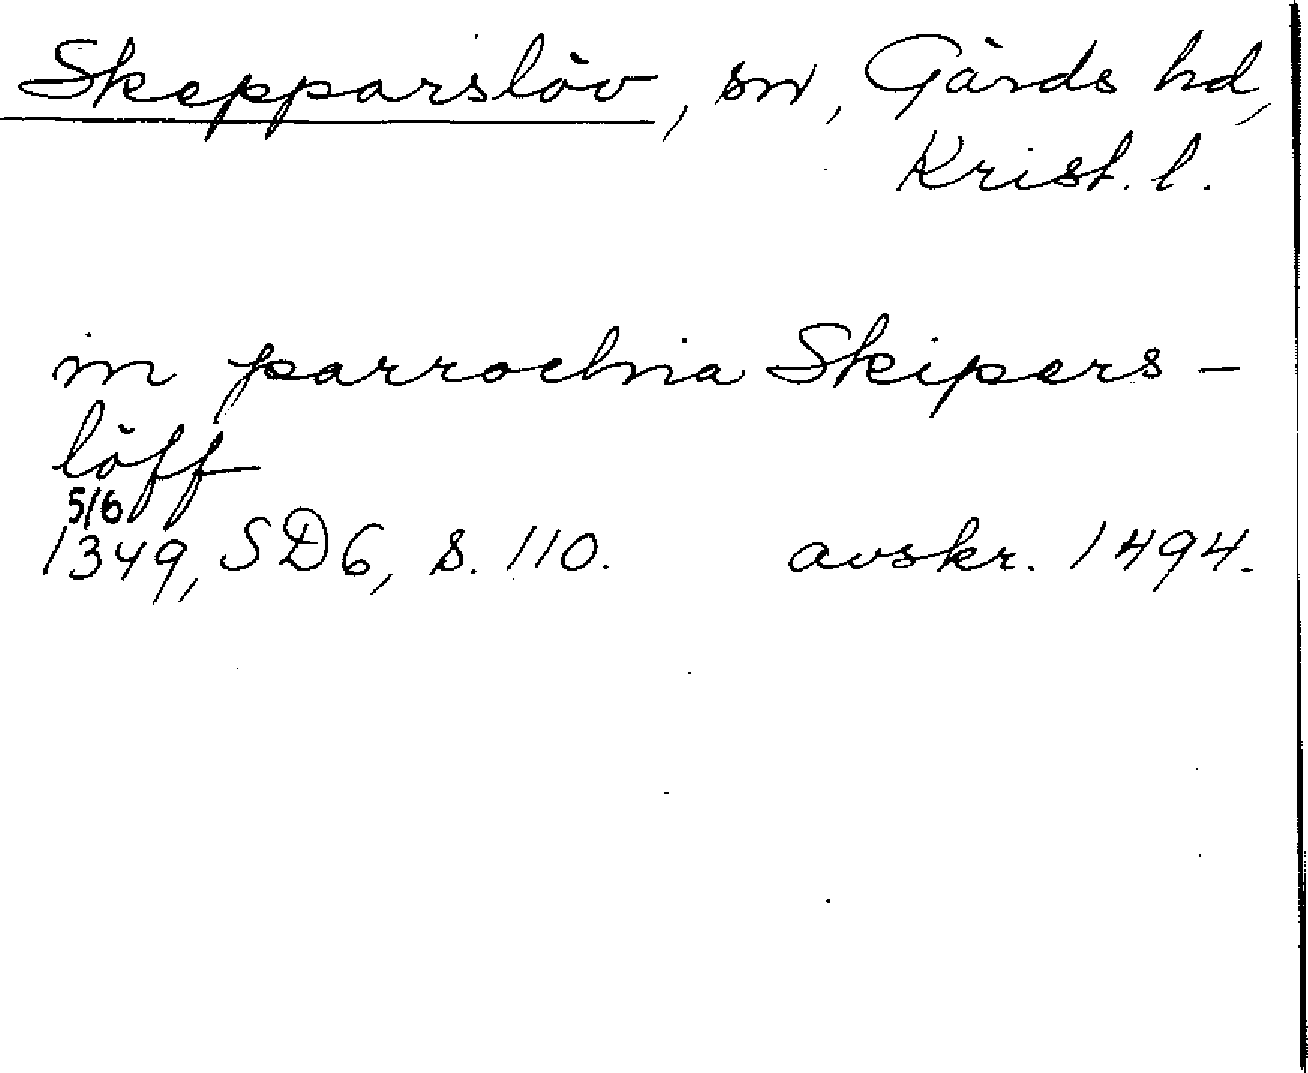 Skepparslöv, sn, Gärds hd,
Krist. l.
in parrochia Skipers-
löff
5/6
1349, SD6, s. 110. avskr. 1494.